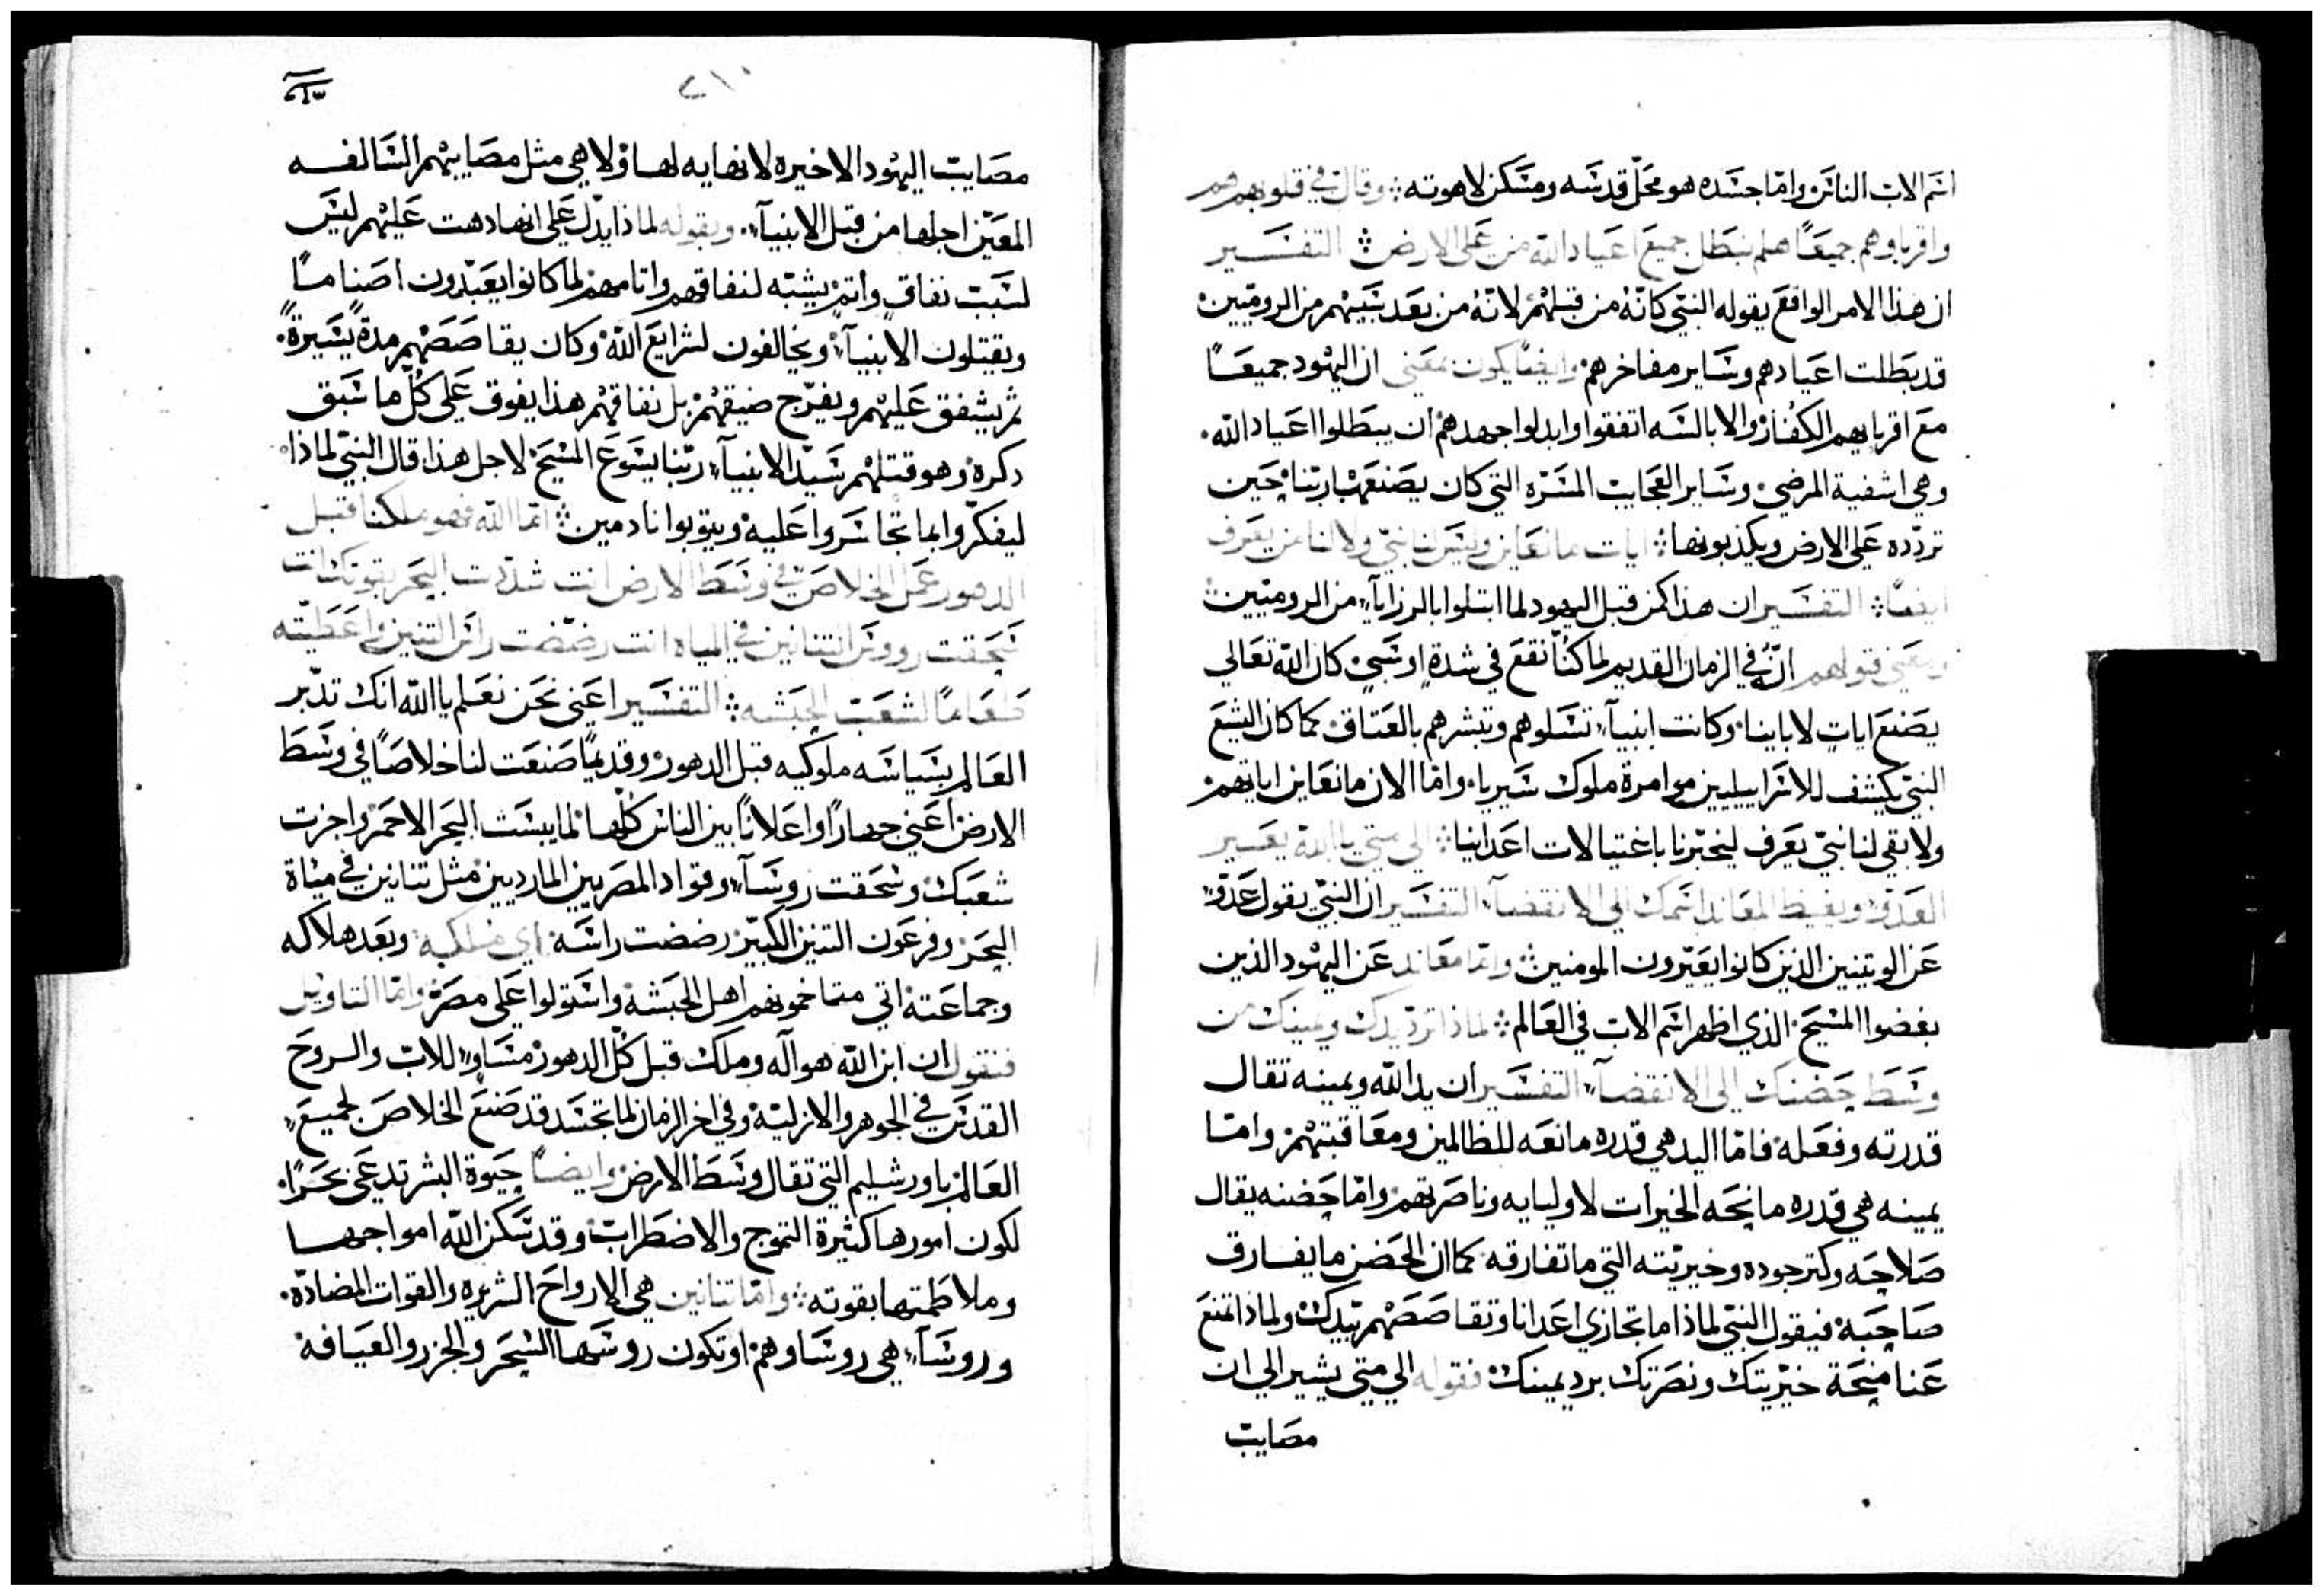 اسم الاب الناس واما جسده هو محل قدسه ومسكن لاهوته وقال في قلوبهم هم
واقرباوهم جميعًا هلم نبطل جميع اعياد الله من علي الارض التفسير
ان هذا الامر الواقع يقوله النبي كانه من قبلهم لانه من بعد سبيهم من الروميين
قد بطلت اعيادهم وساير مفاخرهم وايضًا يكون بمعني ان اليهود جميعًا
مع اقربايهم الكفار والابالسه اتفقوا وابدلوا جهدهم ان يبطلوا اعياد الله
وهي اشفية المرضي وساير العجايب المسره التي كان يصنعها ربنا حين
تردده علي الارض ويكذبونها ايات ما نعاين وليس لنا نبي ولا لنا من يعرف
ايضًا التفسير ان هذا كمن قبل اليهود لما ابتلوا بالرزايا من الروميين
ومعني قولهم انه في الزمان القديم لما كنا نقع في شدة او سبي كان الله تعالي
يصنع ايات لاباينا وكانت انبيآ تسلوهم وتبشرهم بالعتاق كما كان اليشع
النبي يكشف للاسراييليين موامرة ملوك سيريا واما الان ما نعاين اياتهم
ولا بقي لنا نبي يعرف ليخبرنا باغتيالات اعداينا الي متي يا الله يعير
العدو ويغيظ المعاند اسمك الي الانقضآ التفسير ان النبي يقول عدو
عن الوتنيين الذين كانوا يعيرون المومنين واما معاند عن اليهود الذين
بغضوا المسيح الذي اظهر اسم الاب في العالم لماذا ترد يدك ويمينك من
وسط حضنك الي الانقضآ التفسير ان يد الله ويمينه تقال
قدرته وفعله فاما اليد هي قدره مانعه للظالمين ومعاقبتهم واما
يمينه هي قدره مانحه الخيرات لاوليايه وناصرتهم واما حضنه يقال
صلاحه وكتر جوده وخيريته التي ما تفارقه كما ان الحضن ما يفارق
صاحبه فيقول النبي لماذا ما تجازي اعدانا وتقاصصهم بيدك ولماذا تمنع
عنا منحة خيريتك ونصرتك برد يمينك فقوله الي متي يشير الي ان
مصايب
مصايب اليهود الاخيره لا نهايه لها ولا هي مثل مصايبهم السالفه
المعين اجلها من قبل الانبيآ وبقوله لماذا يدل علي انها دهت عليهم ليس
لسبب نفاق واتم يشبه لنفاقهم واتامهم لما كانوا يعبدون اصنامًا
ويقتلون الانبيآ ويخالفون لشرايع الله وكان يقاصصهم مدة يسيرة
ثم يشفق عليهم ويفرج ضيقهم بل نفاقهم هذا يفوق علي كل ما سبق
دكره وهو قتلهم سيد الانبيآ ربنا يسوع المسيح لاجل هذا قال النبي لماذا
ليفكروا بما تجاسروا عليه ويتوبوا نادمين اما الله فهو ملكنا قبل
الدهور عمل الخلاص في وسط الارض انت شددت البحر بقوتك انت
سحقت رووس التنانين في المياه انت رضضت راس التنين واعطيته
طعامًا لشعب الحبشه التفسير اعني نحن نعلم يا الله انك تدبر
العالم بسياسه ملوكيه قبل الدهور وقديمًا صنعت لنا خلاصًا في وسط
الارض اعني جهارًا واعلانًا بين الناس كلها لما يبست البحر الاحمر واجزت
شعبك وسحقت روسآ وقواد المصريين الماردين مثل تنانين في مياة
البحر وفرعون التنين الكبير رضضت راسه اي ملكه وبعد هلاكه
وجماعته اتي متماخموهم اهل الحبشه واستولوا علي مصر واما التاويل
فنقول ان ابن الله هو اله وملك قبل كل الدهور مساوٍ للاب والروح
القدس في الجوهر والازلية وفي اخر الزمان لما تجسد قد صنع الخلاص لجميع
العالم باورشليم التي تقال وسط الارض وايضًا حيوة البشر تدعي بحرًا
لكون امورها كثيرة التموج والاضطراب وقد سكن الله امواجها
وملاطمتها بقوته واما تنانين هي الارواح الشريره والقوات المضادة
وروسآ هي روساوهم او تكون روسها السحر والجزر والعيافه